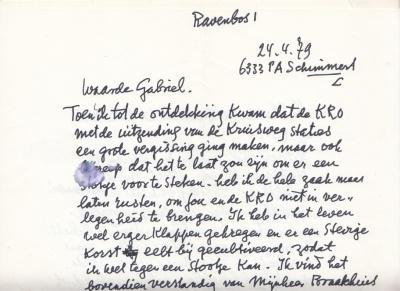 Ravenbos 1
24.4.79
6333 PA Schimmert
Waarde Gabriel.
Toen ik tot de ontdekking kwam dat de KRO
met de uitzending van de Kruisweg staties
een grote vergissing ging maken, maar ook
dat het te laat zou zijn om er een
stokje voor te steken - heb ik de hele zaak maar
laten rusten, om jou en de KRO niet in ver-
legenheid te brengen. Ik heb in het leven
wel erger klappen gekregen en er een stevige
korst op gecultiveerd, zodat
ik wel tegen een stootje kan. Ik vind het
bovendien verstandig van Mijnheer Braakhuis